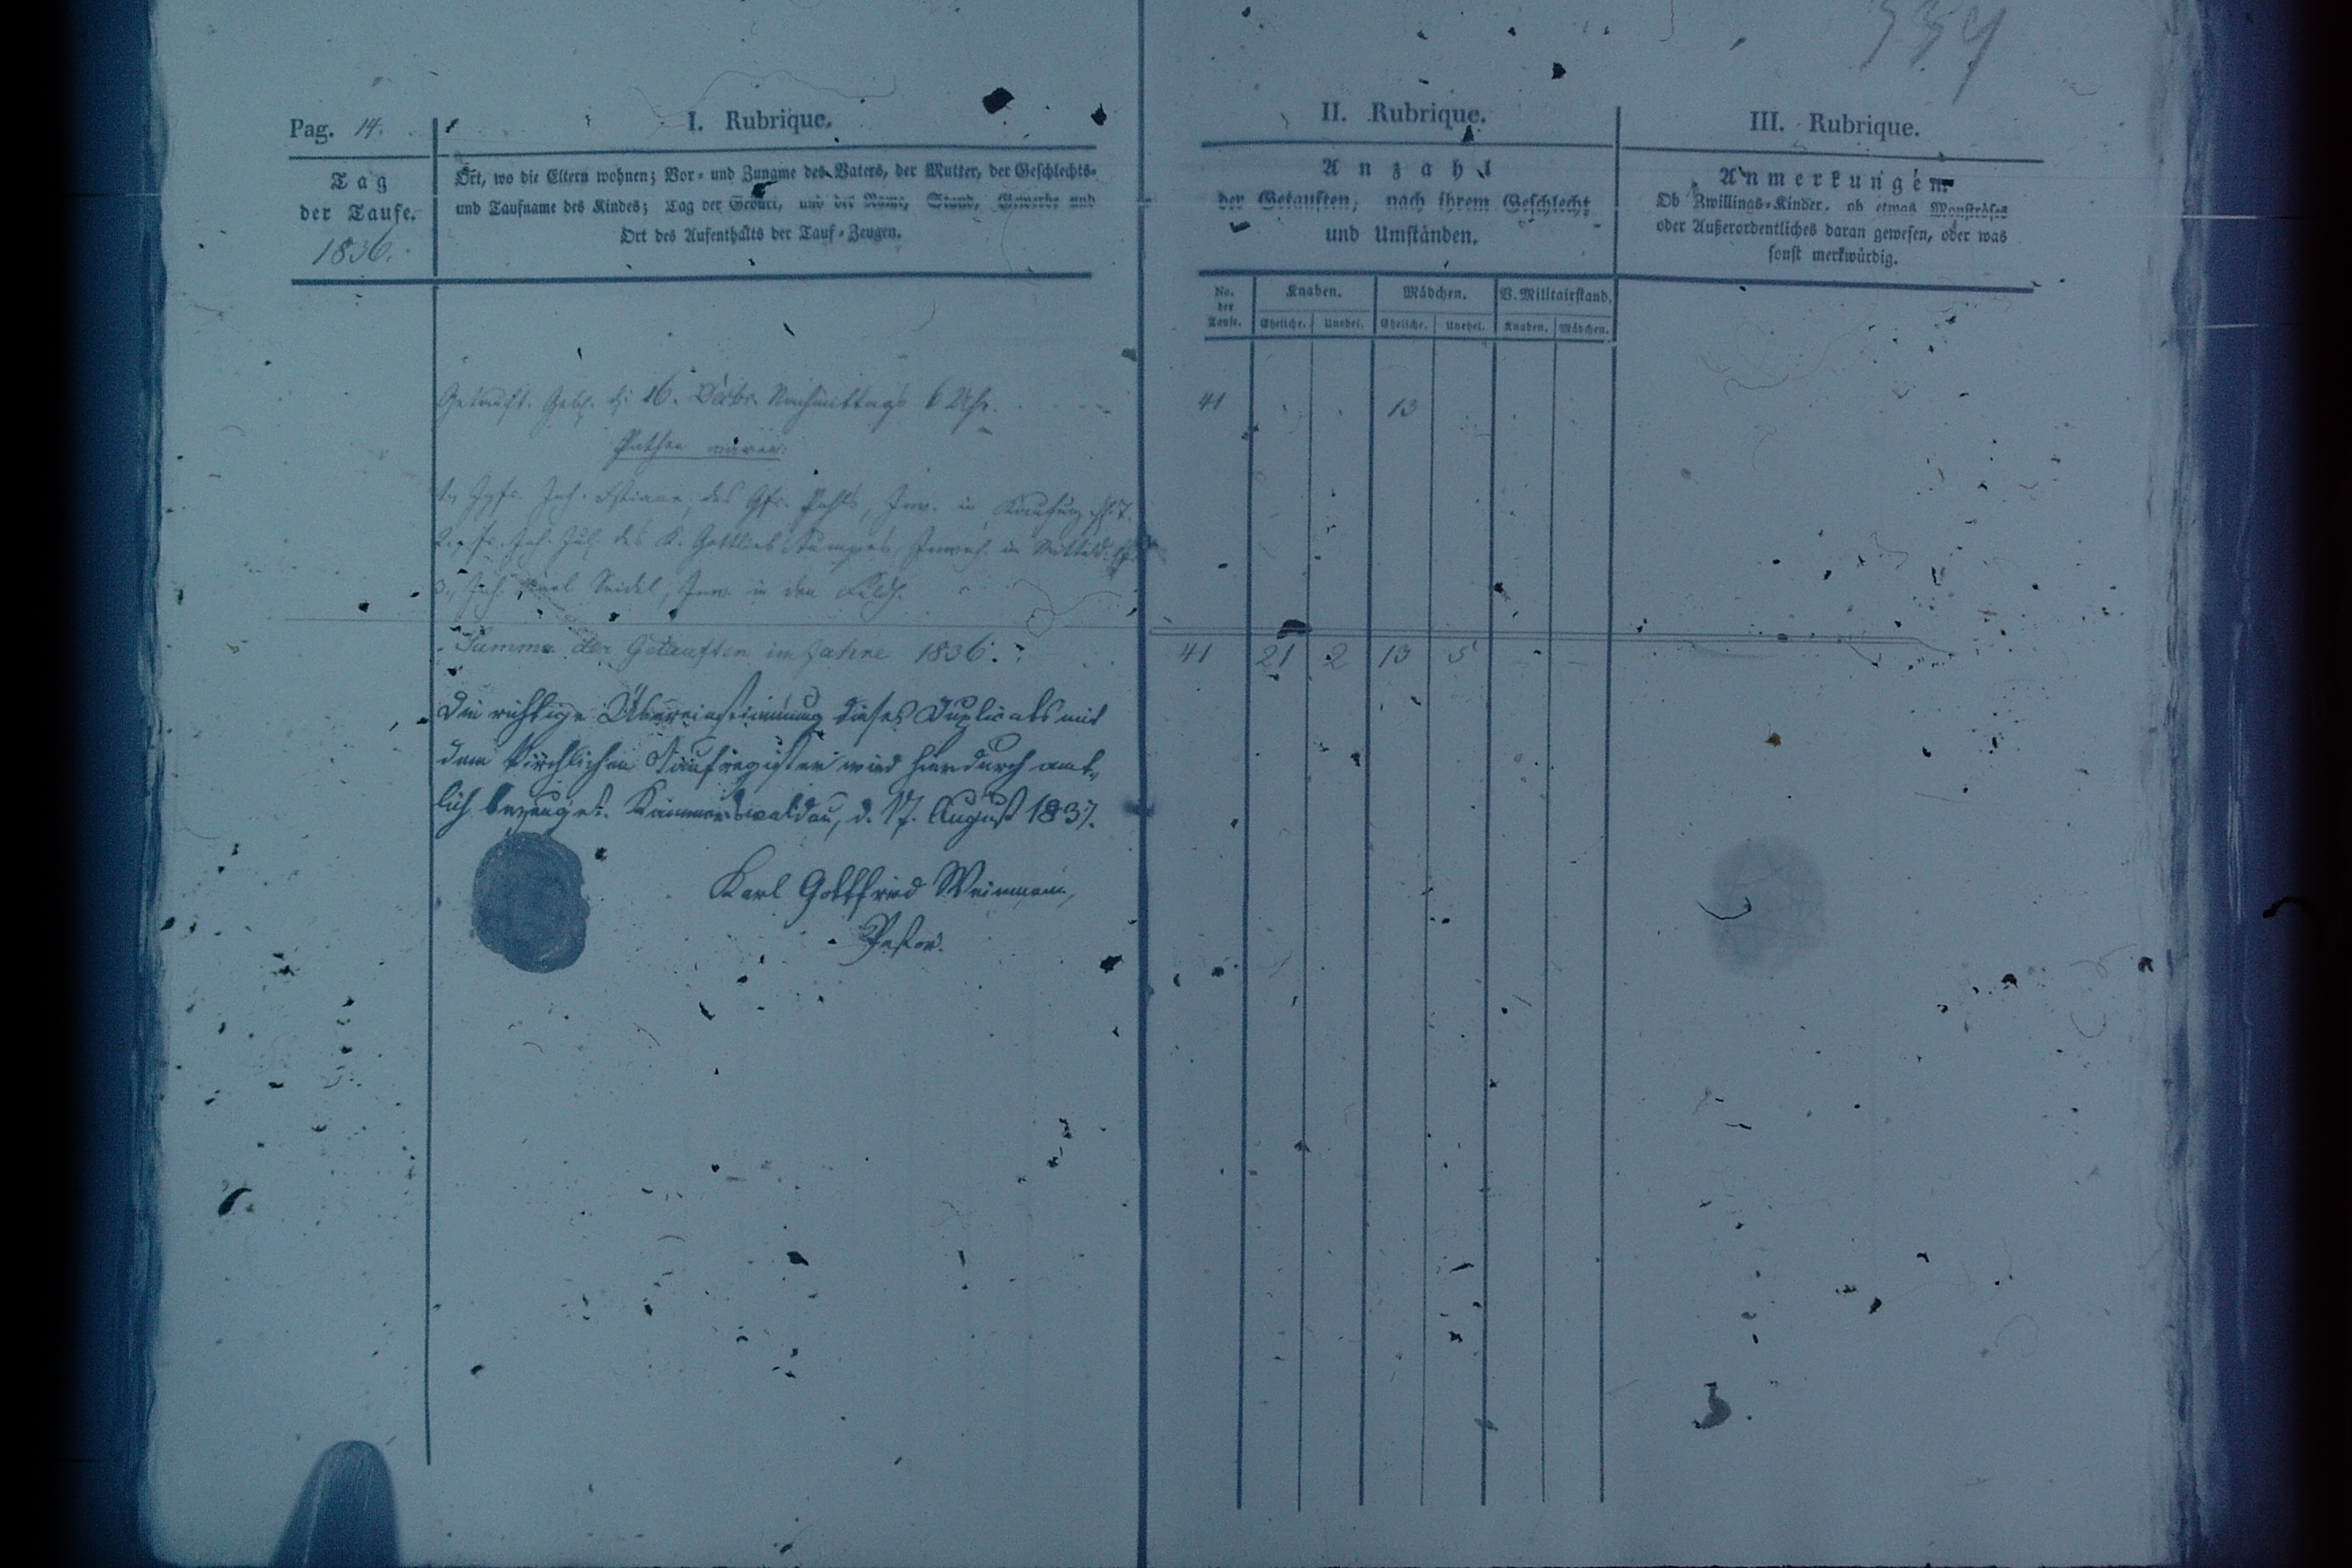 334
Pag. 14.
I. Rubrique.
II. Rubrique.
III. Rubrique.
Tag
der Taufe.
1836.
Ort, wo die Eltern wohnen; Vor- und Zuname des Vaters, der Mutter, der Geschlechts-
und Taufname des Kindes; Tag der Geburt, und der Name, Stand, Gewerbe und
Ort des Aufenthalts der Tauf-Zeugen.
Anzahl
der Getauften, nach ihrem Geschlecht
und Umständen.
Anmerkungen.
Ob Zwillings-Kinder, ob etwas Monströses
oder Außerordentliches daran gewesen, oder was
sonst merkwürdig.
No. der Taufe.
Knaben.
Mädchen.
V. Militairstand.
Eheliche. Unehel. Eheliche. Unehel. Knaben. Mädchen.
Getauft. Geb. d. 16. Decbr. Nachmittags 6 Uhr. 41 13
Pathen waren:
1., Jgfr. Joh. des Pohls, Inw. in Kauffung
2., Fr. Joh. Jul. des K. Gottlieb in
3., Joh. Karl Seidel, Inw. in den
Summa der Getauften im Jahre 1836. 41 21 2 13 5
Die richtige Übereinstimmung dieses Duplicats mit
dem kirchlichen Taufregister wird hierdurch amt-
lich bezeuget. Kammerswaldau, d. 17. August 1837.
Karl Gottfried Weinmann,
Pastor.